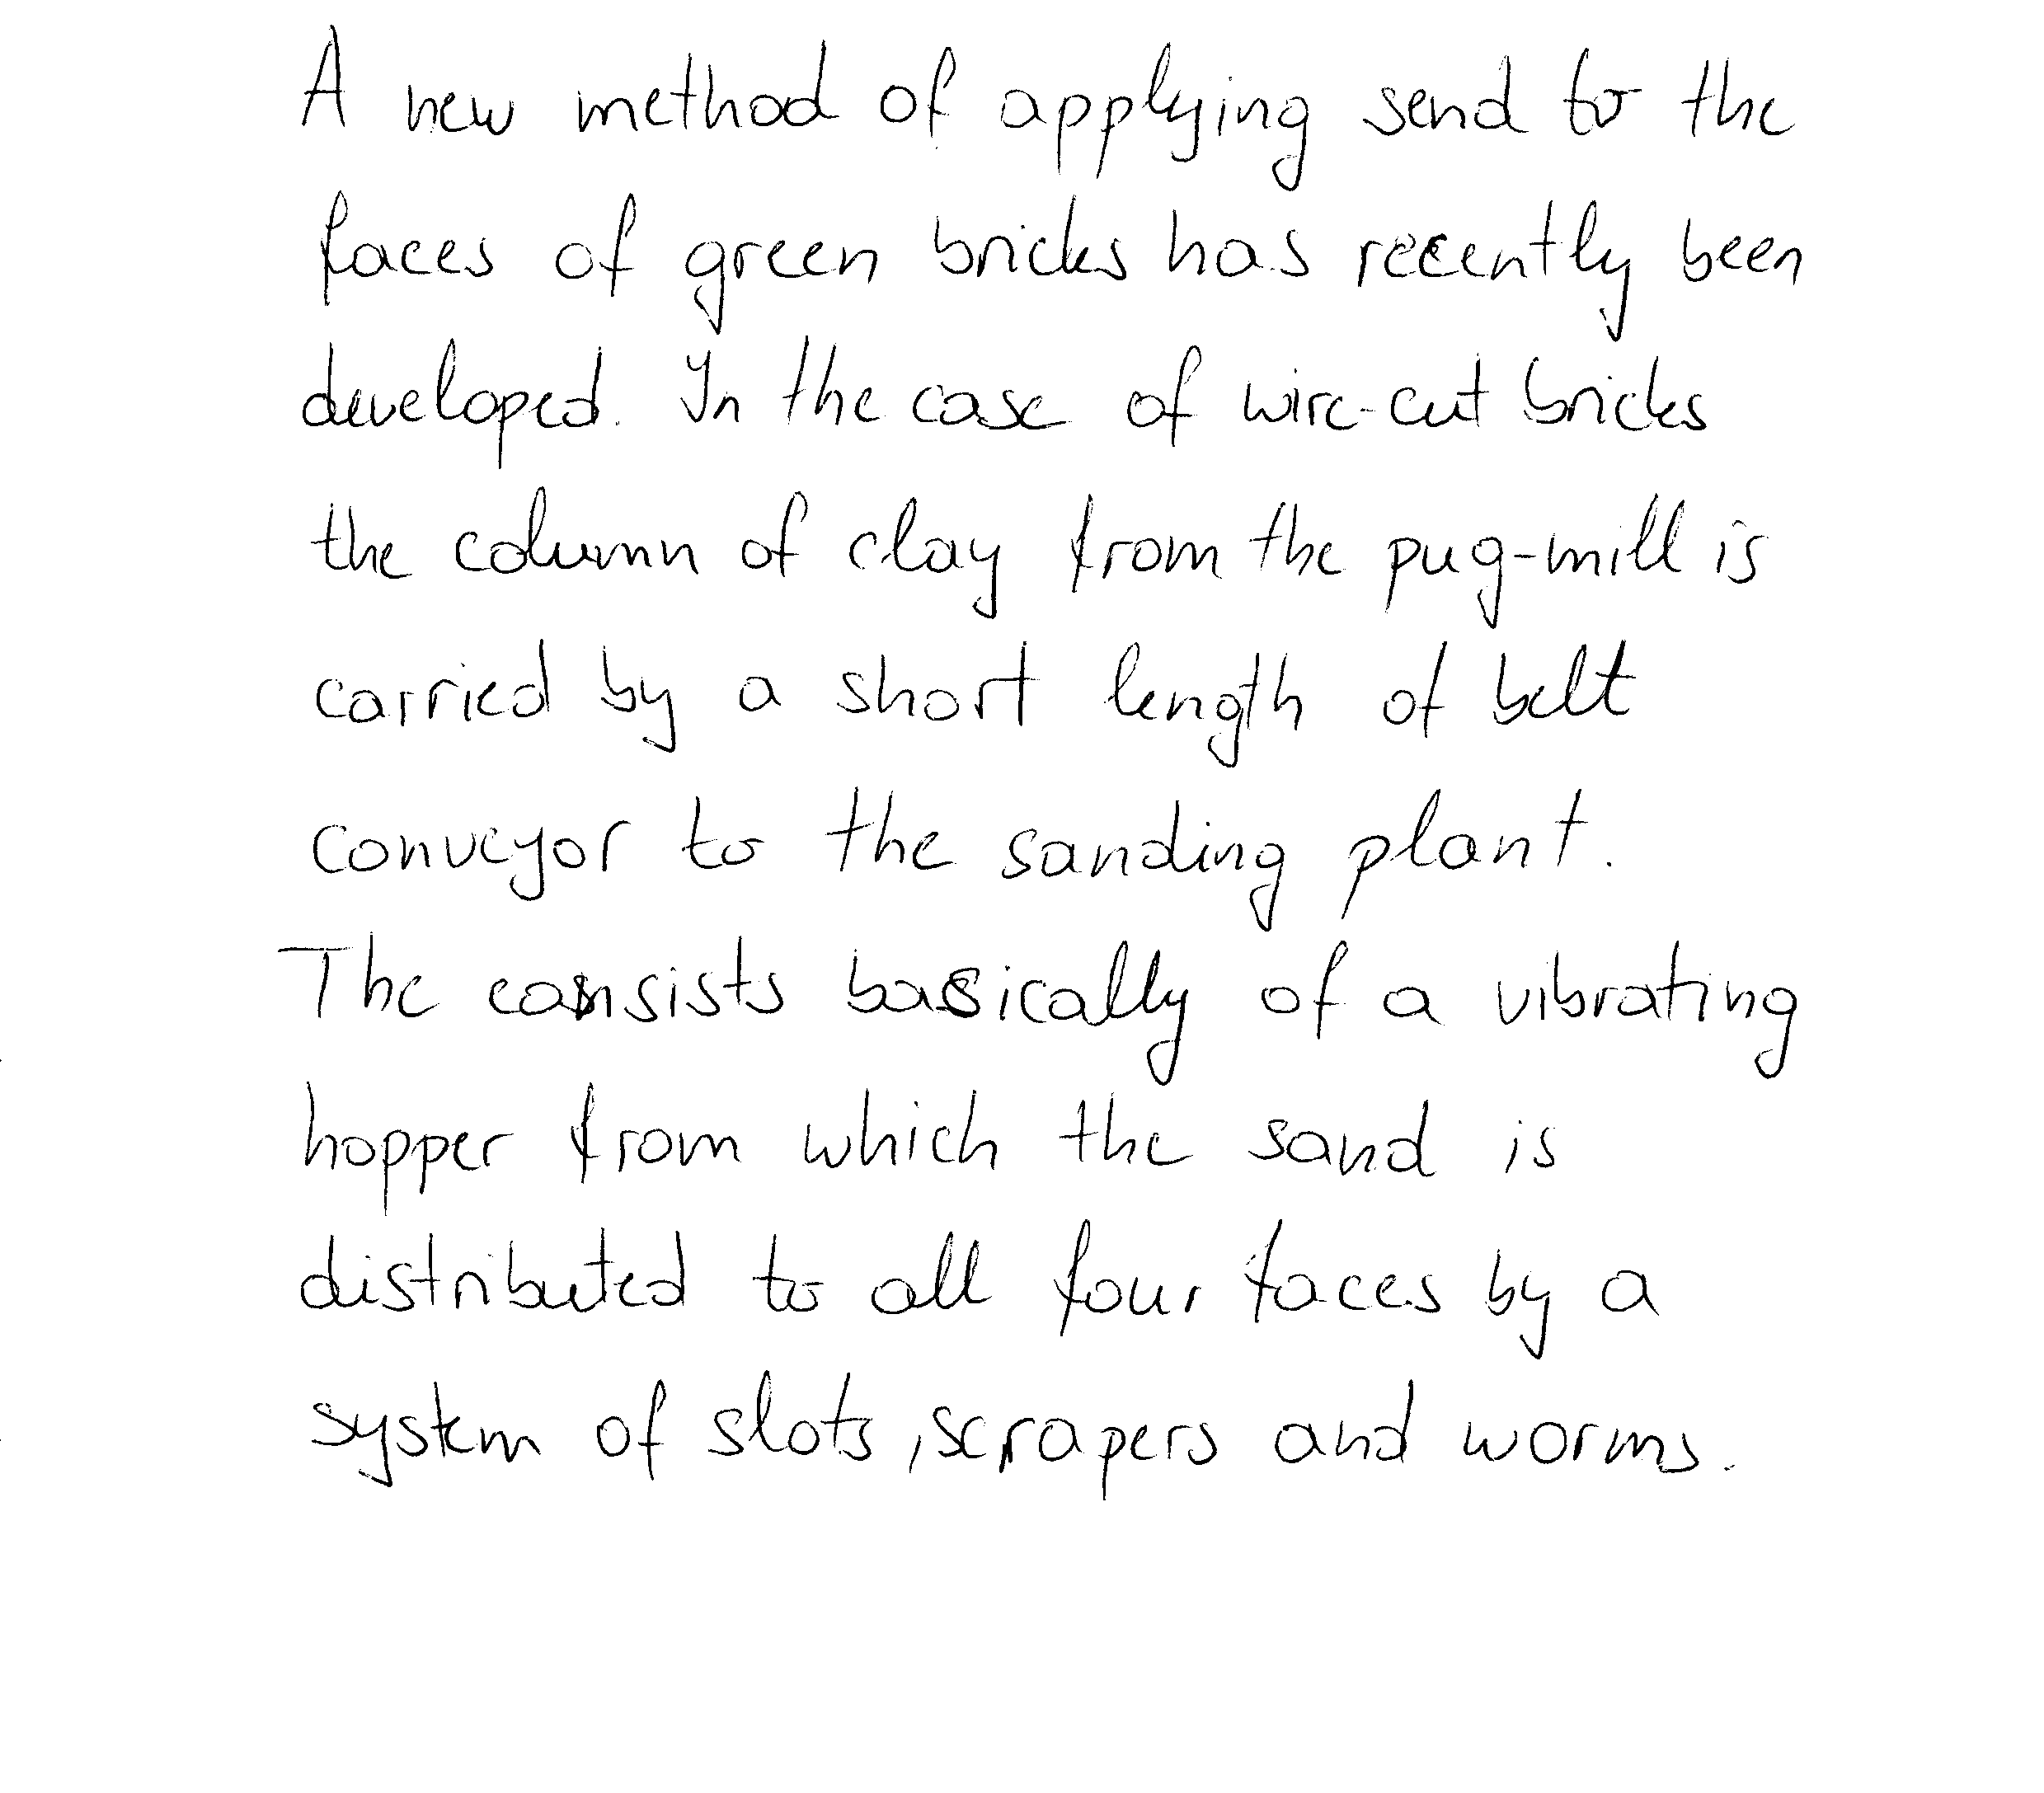 A new method of applying send to the
faces of green bricks has recently been
developed. In the case of wire-cut bricks
the column of clay from the pug-mill is
carried by a short length of belt
conveyor to the sanding plant.
The consists basically of a vibrating
hopper from which the sand is
distributed to all four faces by a
system of slots, scrapers and worms.